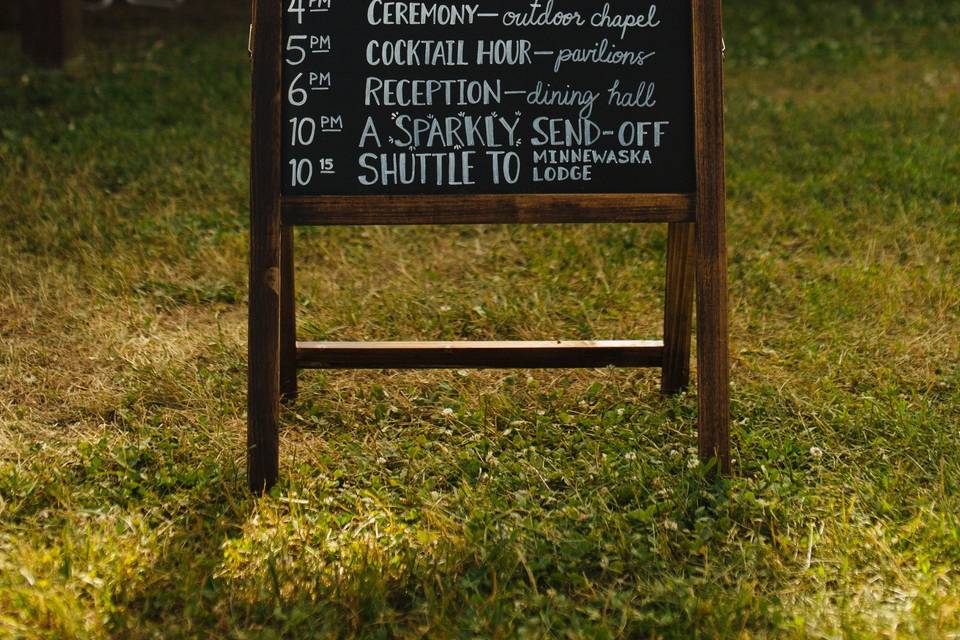 4PM CEREMONY—outdoor chapel
5PM COCKTAIL HOUR—pavilions
6PM RECEPTION—dining hall
10PM A SPARKLY SEND-OFF
10 15 SHUTTLE TO MINNEWASKA
LODGE